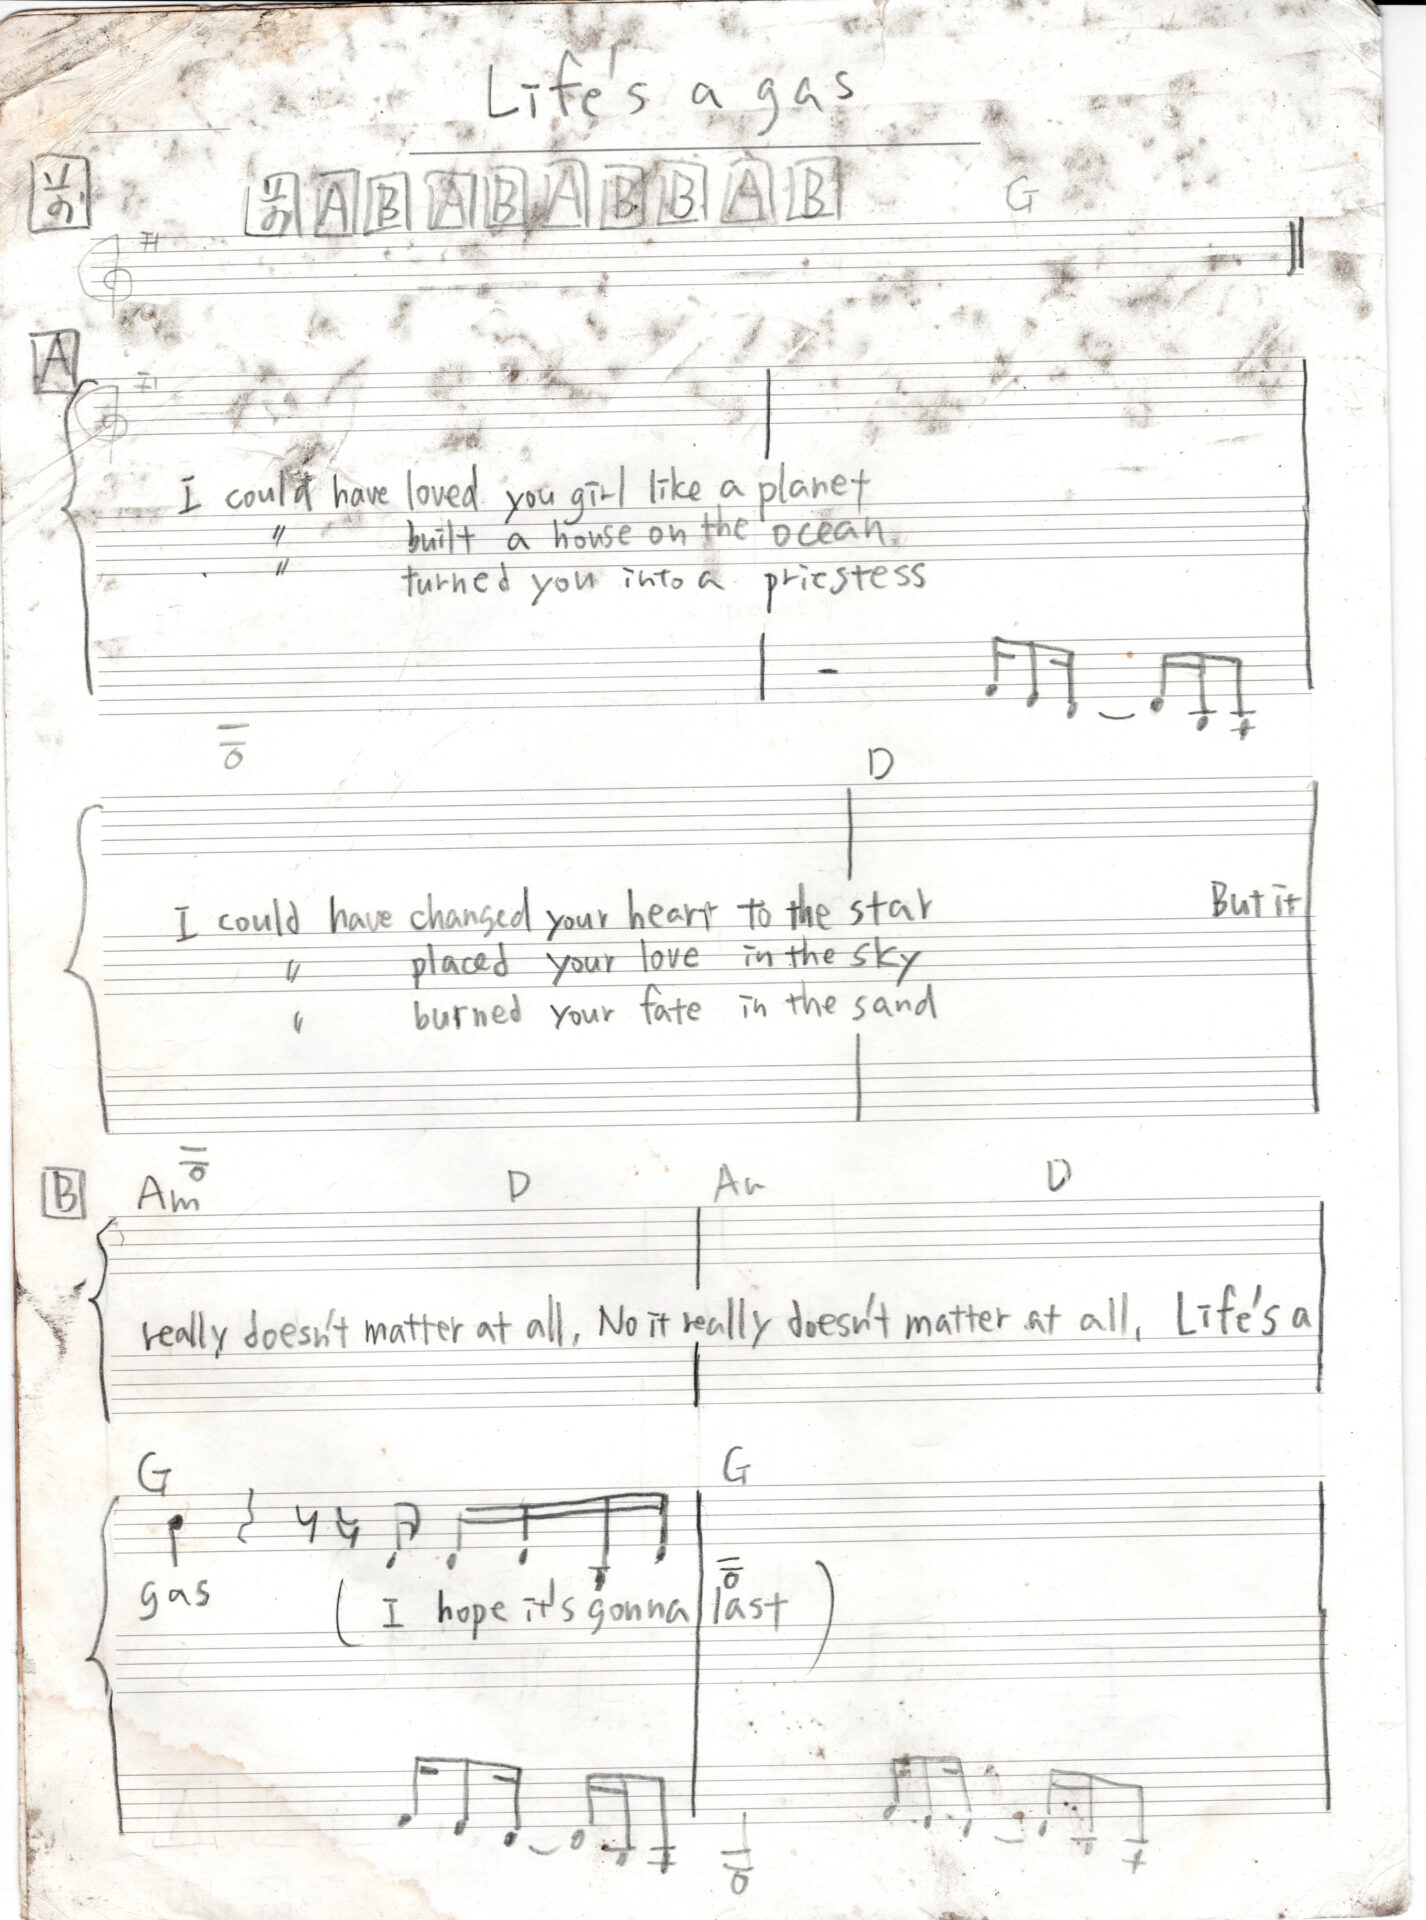 Life's a gas
A B A B A B B A B G
A
I could have loved you girl like a planet
〃 built a house on the ocean.
〃 turned you into a priestess
D
I could have changed your heart to the star But it
〃 placed your love in the sky
〃 burned your fate in the sand
B Am D Am D
really doesn't matter at all, No it really doesn't matter at all, Life's a
G G
gas ( I hope it's gonna last )